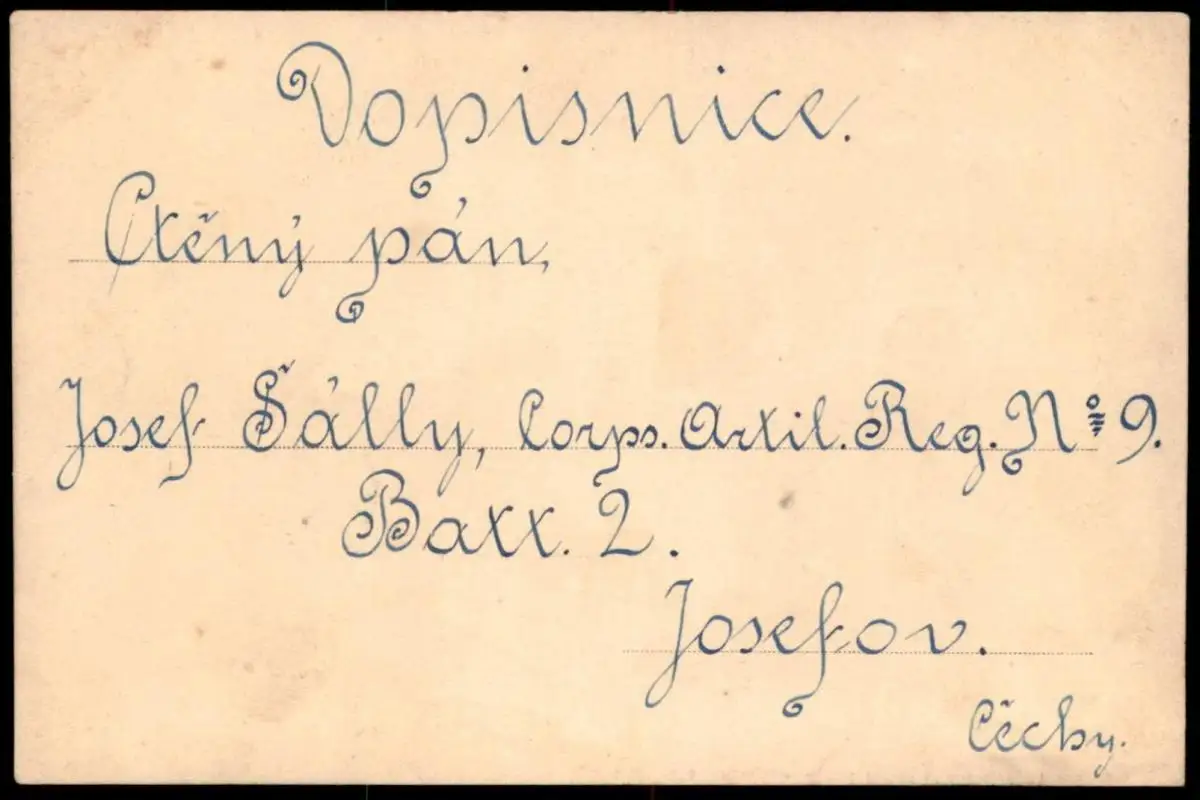 Dopisnice.
Ctěný pán,
Josef Šálly, Corps. Artil. Reg. No 9.
Batt. 2.
Josefov.
Cěchy.